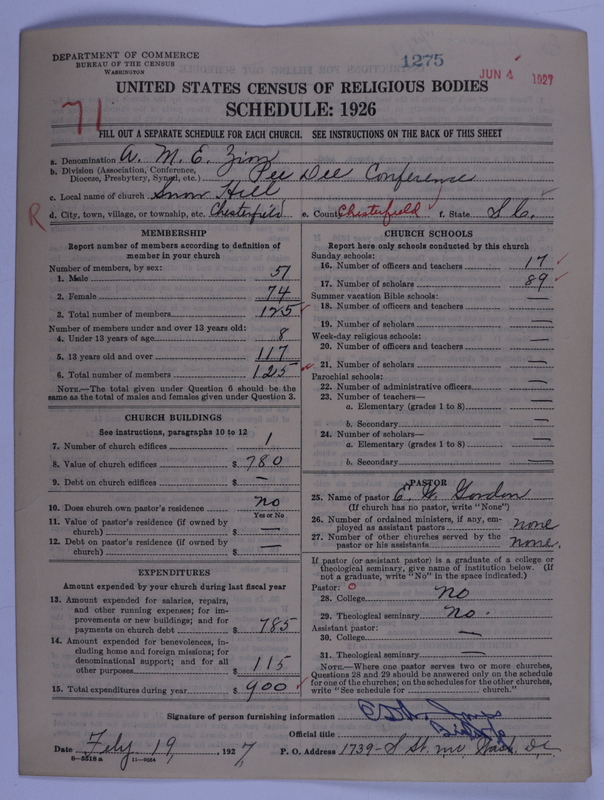 DEPARTMENT OF COMMERCE
BUREAU OF THE CENSUS
WASHINGTON
1275
JUN 4 1927
UNITED STATES CENSUS OF RELIGIOUS BODIES
SCHEDULE: 1926
71
FILL OUT A SEPARATE SCHEDULE FOR EACH CHURCH. SEE INSTRUCTIONS ON THE BACK OF THIS SHEET
a. Denomination A. M. E. Zion
b. Division (Association, Conference, Diocese, Presbytery, Synod, etc.) Pee Dee Conference
c. Local name of church Snow Hill
R
d. City, town, village, or township, etc. Chesterfield e. County Chesterfield f. State S C.
MEMBERSHIP
Report number of members according to definition of
member in your church
Number of members, by sex:
1. Male 51
2. Female 74
3. Total number of members 125
Number of members under and over 13 years old:
4. Under 13 years of age 8
5. 13 years old and over 117
6. Total number of members 125
NOTE.—The total given under Question 6 should be the
same as the total of males and females given under Question 3.
CHURCH BUILDINGS
See instructions, paragraphs 10 to 12
7. Number of church edifices 1
8. Value of church edifices $ 780
9. Debt on church edifices $ —
10. Does church own pastor's residence no
Yes or No
11. Value of pastor's residence (if owned by
church) $ —
12. Debt on pastor's residence (if owned by
church) $ —
EXPENDITURES
Amount expended by your church during last fiscal year
13. Amount expended for salaries, repairs,
and other running expenses; for im-
provements or new buildings; and for
payments on church debt $ 785
14. Amount expended for benevolences, in-
cluding home and foreign missions; for
denominational support; and for all
other purposes $ 115
15. Total expenditures during year $ 900
CHURCH SCHOOLS
Report here only schools conducted by this church
Sunday schools:
16. Number of officers and teachers 17
17. Number of scholars 89
Summer vacation Bible schools:
18. Number of officers and teachers —
19. Number of scholars —
Week-day religious schools:
20. Number of officers and teachers —
21. Number of scholars —
Parochial schools:
22. Number of administrative officers —
23. Number of teachers—
a. Elementary (grades 1 to 8) —
b. Secondary —
24. Number of scholars—
a. Elementary (grades 1 to 8) —
b. Secondary —
PASTOR
25. Name of pastor Gordon
(If church has no pastor, write "None")
26. Number of ordained ministers, if any, em-
ployed as assistant pastors none
27. Number of other churches served by the
pastor or his assistants none.
If pastor (or assistant pastor) is a graduate of a college or
theological seminary, give name of institution below. (If
not a graduate, write "No" in the space indicated.)
Pastor:
28. College No
29. Theological seminary No.
Assistant pastor:
30. College —
31. Theological seminary —
NOTE.—Where one pastor serves two or more churches,
Questions 28 and 29 should be answered only on the schedule
for one of the churches; on the schedules for the other churches,
write "See schedule for ........ church."
Signature of person furnishing information
Official title Bishop
Date Feby 19, 1927 P. O. Address 1739-S St. nw Wash. D C
8-5518a 11-9034